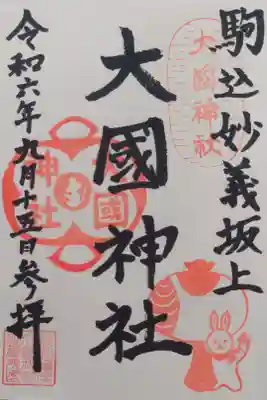 駒込妙義坂上
大國神社
大國神社
大國神社
令和六年九月十五日参拝